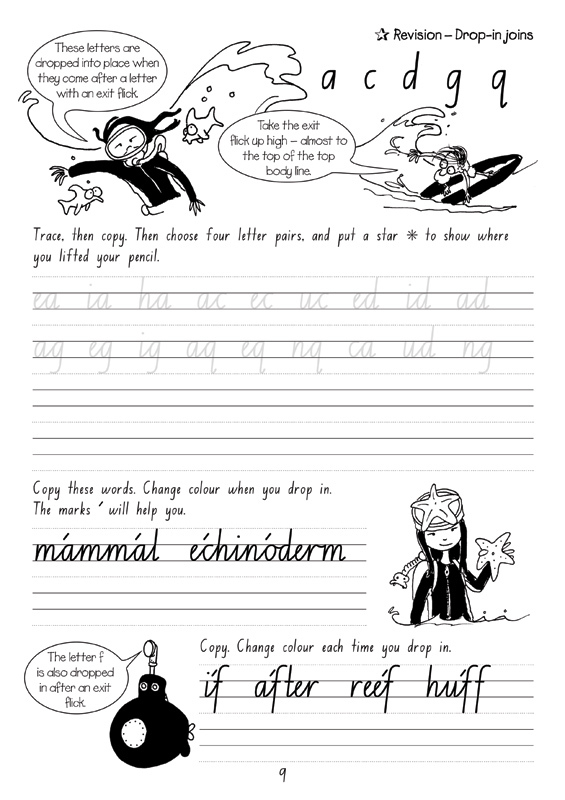 These letters are
dropped into place when
they come after a letter
with an exit flick.
☆ Revision – Drop-in joins
a c d g q
Take the exit
flick up high – almost to
the top of the top
body line.
Trace, then copy. Then choose four letter pairs, and put a star ✳ to show where
you lifted your pencil.
ea ia ha ac ec uc ed id ad
ag eg ig aq eq nq ca ud ng
Copy these words. Change colour when you drop in.
The marks ´ will help you.
mámmál échinóderm
The letter f
is also dropped
in after an exit
flick.
Copy. Change colour each time you drop in.
if after reef huff
9